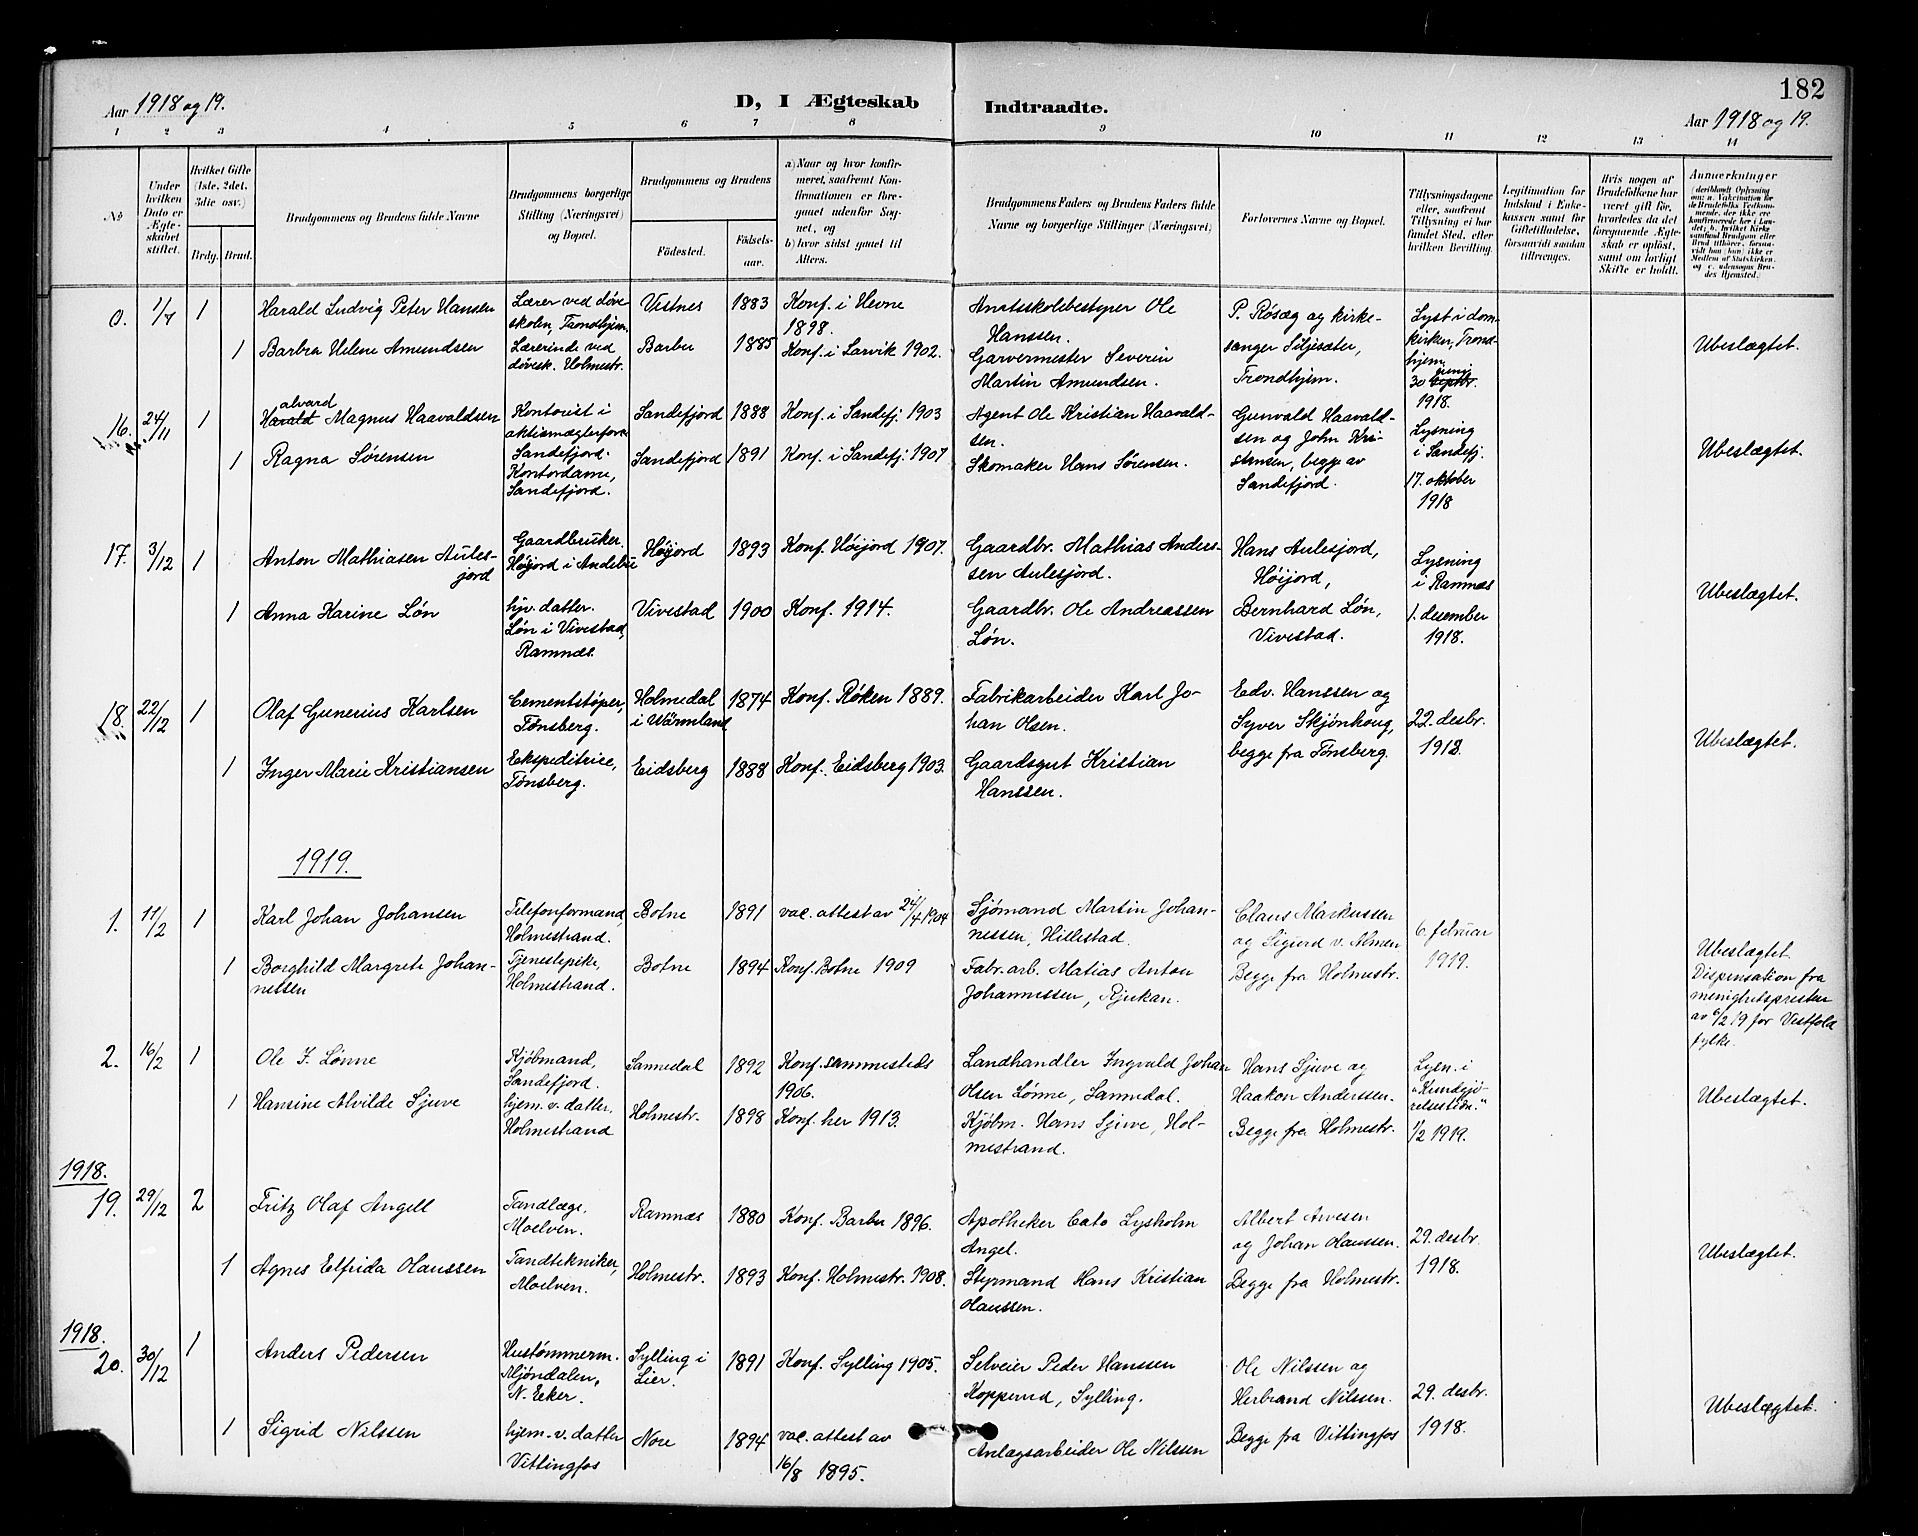 182
Aar 1918 og 19.
D, I Ægteskab
Indtraadte.
Aar 1918 og 19.
1 2 3 4 5 6 7 8 9 10 11 12 13 14
No
Under hvilken Dato er Ægteskabet stiftet.
Hvilket Gifte (1ste, 2det, 3die osv.)
Brdg. Brud.
Brudgommens og Brudens fulde Navne
Brudgommens borgerlige Stilling (Næringsvei) og Bopæl.
Brudgommens og Brudens
Fødested.
Fødselsaar.
a) Naar og hvor konfirmeret, saafremt Konfirmationen er foregaaet udenfor Sognet, og
b) hvor sidst gaaet til Alters.
Brudgommens Faders og Brudens Faders fulde Navne og borgerlige Stillinger (Næringsvei)
Forlovernes Navne og Bopæl.
Tillysningsdagene eller, saafremt Tillysning ei har fundet Sted, efter hvilken Bevilling.
Legitimation for Indskud i Enkekassen samt for Giftetilladelse, forsaavidt saadan tiltrænges.
Hvis nogen af Brudefolkene har været gift før, hvorledes da det foregaaende Ægteskab er opløst, samt om lovligt Skifte er holdt.
Anmærkninger
(deriblandt Oplysning om: a. Vakcination for de Brudefolks Vedkommende, der ikke ere konfirmerede her i Landet; b. hvilket Kirkesamfund Brudgom eller Brud tilhører, forsaavidt han (hun) ikke er Medlem af Statskirken, og c. udensogns Brudes Hjemsted.)
0. 1/7 1
Harald Ludvig Peter Hansen
Lærer ved døveskolen, Trondhjem.
Vestnes 1883
Konf. i Hevne 1898.
Amtsskolebestyrer Ole Hanssen.
P. Røsæg og kirkesanger Siljesæter, Trondhjem.
Lyst i domkirken, Trondhjem, 30 septbr. juni 1918.
1
Barbra Helene Amundsen
Lærerinde ved døvesk. Holmestr.
Barbu 1885
Konf. i Larvik 1902.
Garvermester Severin Martin Amundsen.
Ubeslægtet.
16. 24/11 1
alvard
Harald Magnus Haavaldsen
Kontorist i aktiemæglerforr. Sandefjord.
Sandefjord 1888
Konf. i Sandefj. 1903
Agent Ole Kristian Haavaldsen.
Gunvald Haavaldsen og John Kristansen, begge av Sandefjord.
Lysning i Sandefj. 17. oktober 1918
1
Ragna Sørensen
Kontordame, Sandefjord.
Sandefjord 1891
Konf. i Sandefj. 1907
Skomaker Hans Sørensen.
Ubeslægtet.
17. 3/12 1
Anton Mathiasen Aulesjord
Gaardbruker Høijord i Andebu
Høijord 1893
Konf. Høijord 1907.
Gaardbr. Mathias Anderssen Aulesjord.
Hans Aulesjord, Høijord,
Bernhard Løn, Vivestad.
Lysning i Ramnæs 1. desember 1918.
1
Anna Karine Løn
hjv. datter. Løn i Vivestad, Ramnæs.
Vivestad 1900
Konf. 1914.
Gaardbr. Ole Andreassen Løn.
Ubeslægtet.
18. 22/12 1
Olaf Gunerius Karlsen
Cementstøper, Tønsberg.
Holmedal i Wärmland 1874
Konf. Røken 1889.
Fabrikarbeider Karl Johan Olsen.
Edv. Hanssen og Syver Skjønhoug, begge fra Tønsberg.
22. desbr. 1918.
1
Inger Marie Kristiansen
Ekspeditrice, Tønsberg.
Eidsberg 1888
Konf. Eidsberg 1903.
Gaardsgut Kristian Hanssen.
Ubeslægtet.
1919.
1. 11/2 1
Karl Johan Johansen
Telefonformand, Holmestrand.
Botne 1891
vac. attest av 24/4 1904
Sjømand Martin Johannessen, Hillestad.
Claus Markussen og Sigurd v. Almen Begge fra Holmestr.
6. februar 1919.
1
Borghild Margrete Johannessen
Tjenestepike, Holmestrand.
Botne 1894
Konf. Botne 1909
Fabr. arb. Matias Anton Johannessen, Rjukan.
Ubeslægtet.
Dispensation fra menighetspresten av 6/2 19 for Vestfold fylke.
2. 16/2 1
Ole I. Lønne
Kjøbmand, Sandefjord.
Sannedal 1892
Konf. sammesteds 1906.
Landhandler Ingvald Johan Olsen Lønne, Sannidal.
Hans Sjuve og Haakon Anderssen. Begge fra Holmestr.
Lysn. i "Kundgjørelsestid." 1/2 1919.
1
Hansine Alvilde Sjuve
hjem. v. datter, Holmestrand
Holmestr. 1898
Konf. her 1913.
Kjøbm. Hans Sjuve, Holmestrand.
Ubeslægtet.
1918.
19. 29/12 2
Fritz Olaf Angell
Tandlæge, Moelven.
Ramnæs 1880
Konf. Barbu 1896.
Apotheker Cato Lysholm Angel.
Albert Arvesen og Johan Olaussen. Begge fra Holmestr.
29. desbr. 1918.
1
Agnes Elfrida Olaussen
Tandtekniker, Moelven.
Holmestr. 1893
Konf. Holmestr. 1908.
Styrmand Hans Kristian Olaussen.
Ubeslægtet.
1918.
20. 30/12 1
Anders Pedersen
Hustømmerm. Mjøndalen, N. Eeker.
Sylling i Lier. 1891
Konf. Sylling 1905.
Selveier Peder Hanssen Kopperud, Sylling.
Ole Nilssen og Herbrand Nilssen. Begge fra Vittingfos
29. desbr. 1918.
1
Sigrid Nilssen
hjem. v. datter Vittingfos
Nore 1894
vac. attest av 16/8 1895.
Anlægsarbeider Ole Nilssen
Ubeslægtet.